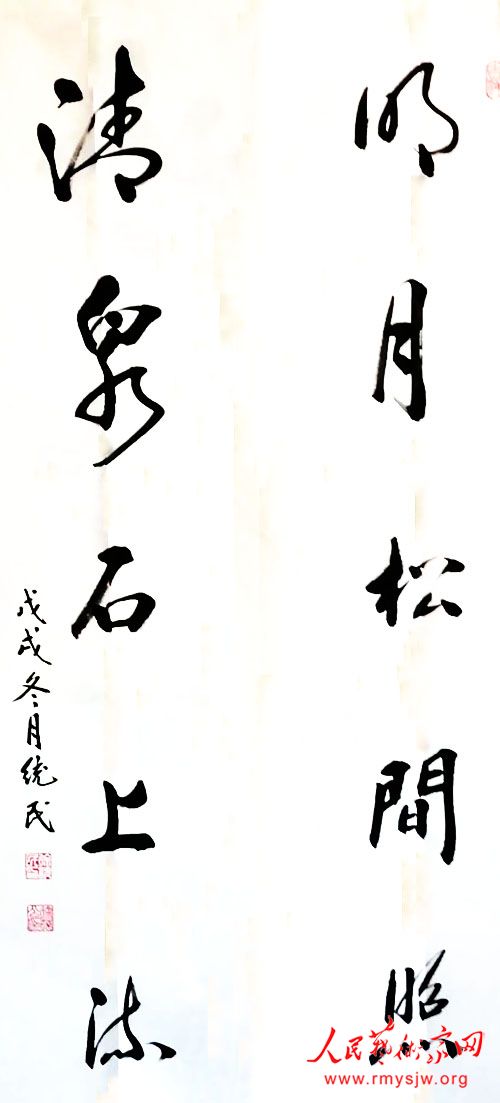 明月松間照
清泉石上流
戊戌冬月统民
人民艺术家网
www.rmysjw.org